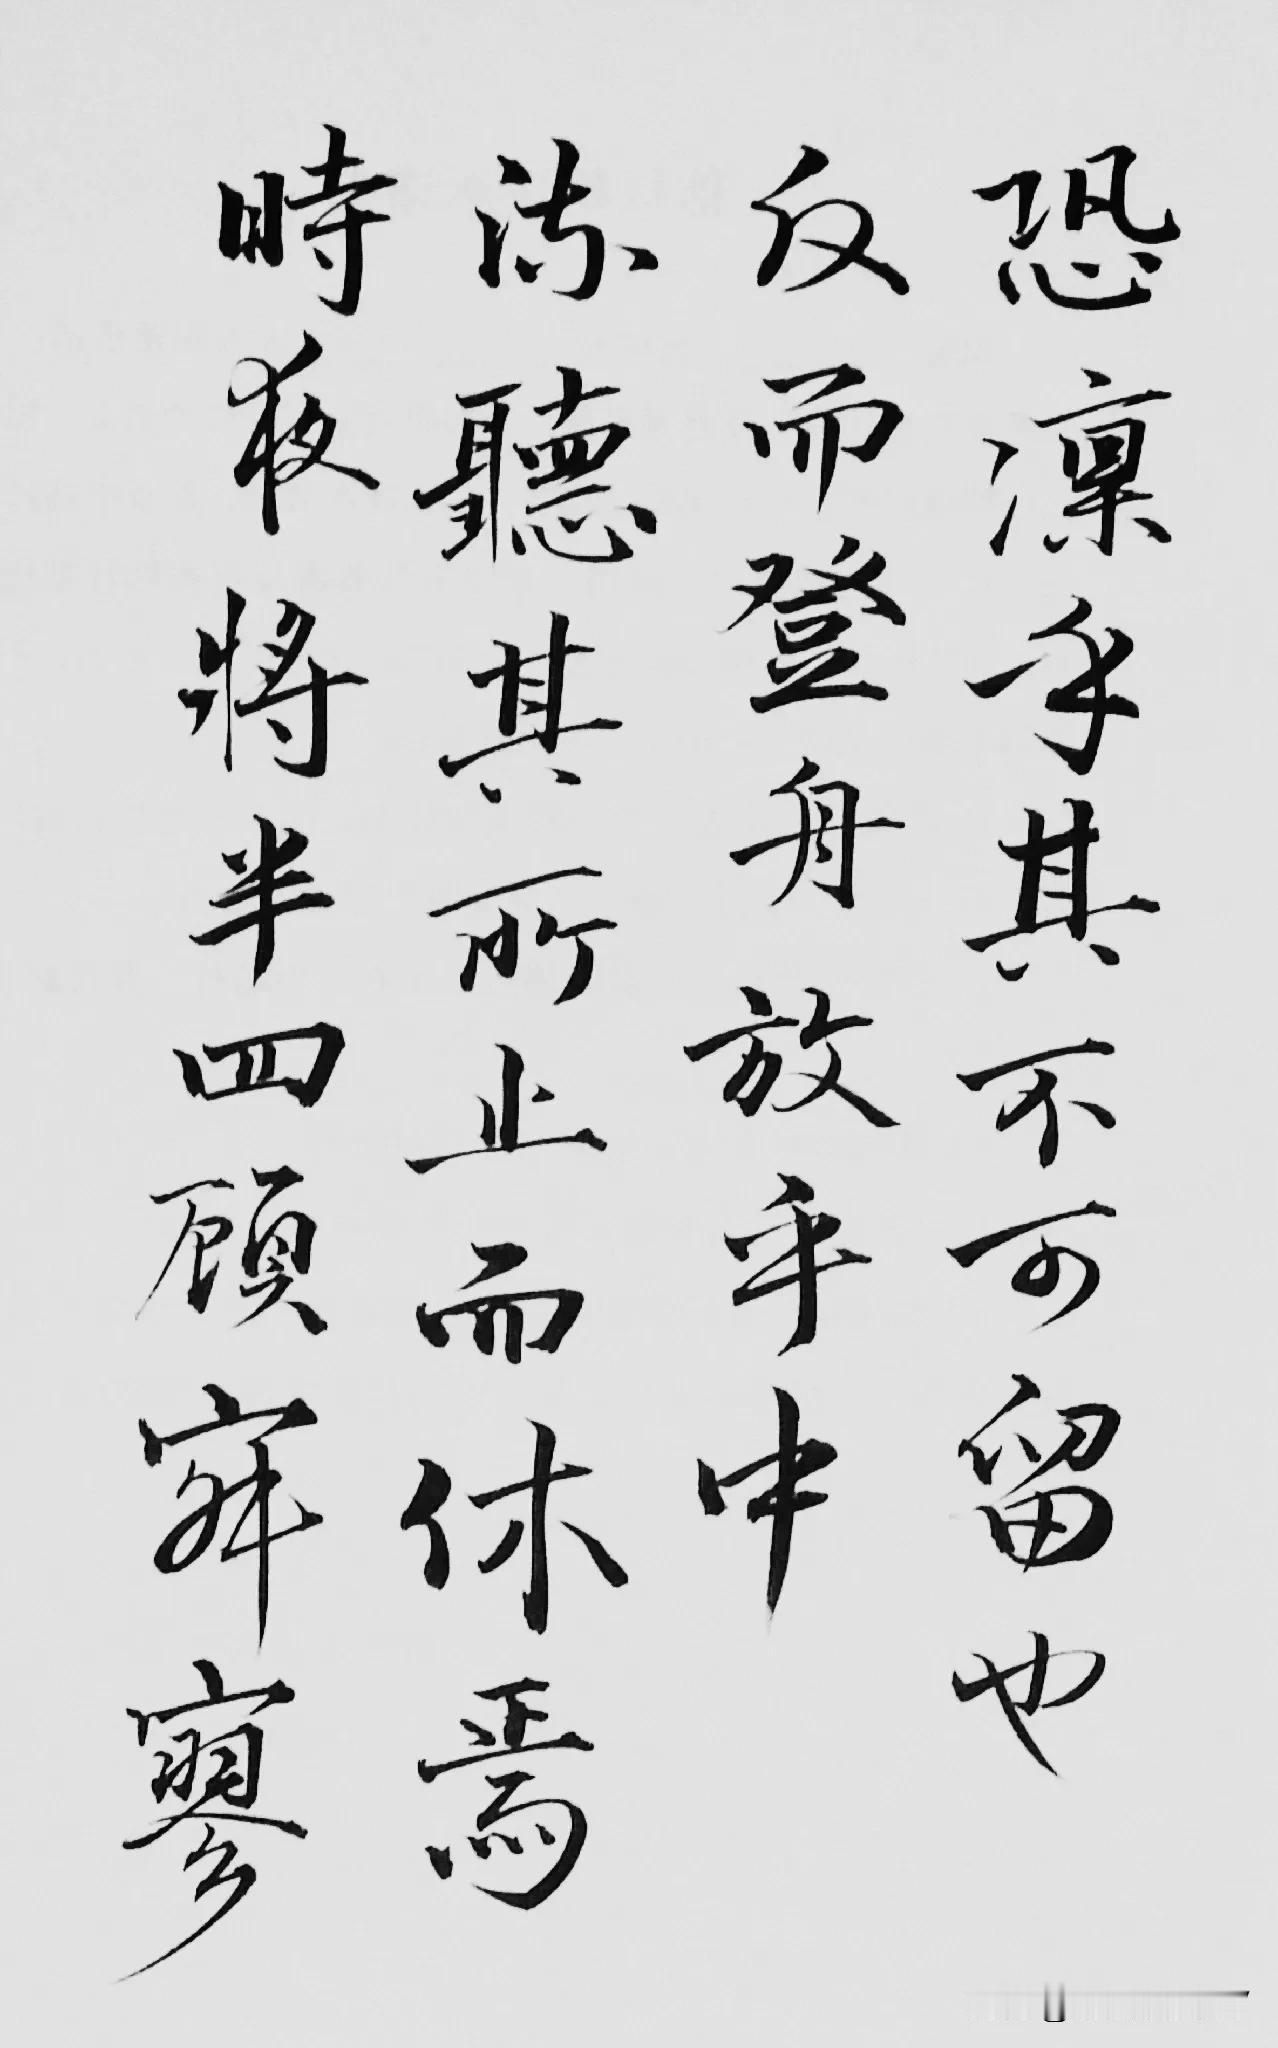 恐凜乎其不可留也
反而登舟放乎中
流聽其所止而休焉
時夜將半四顧寂寥